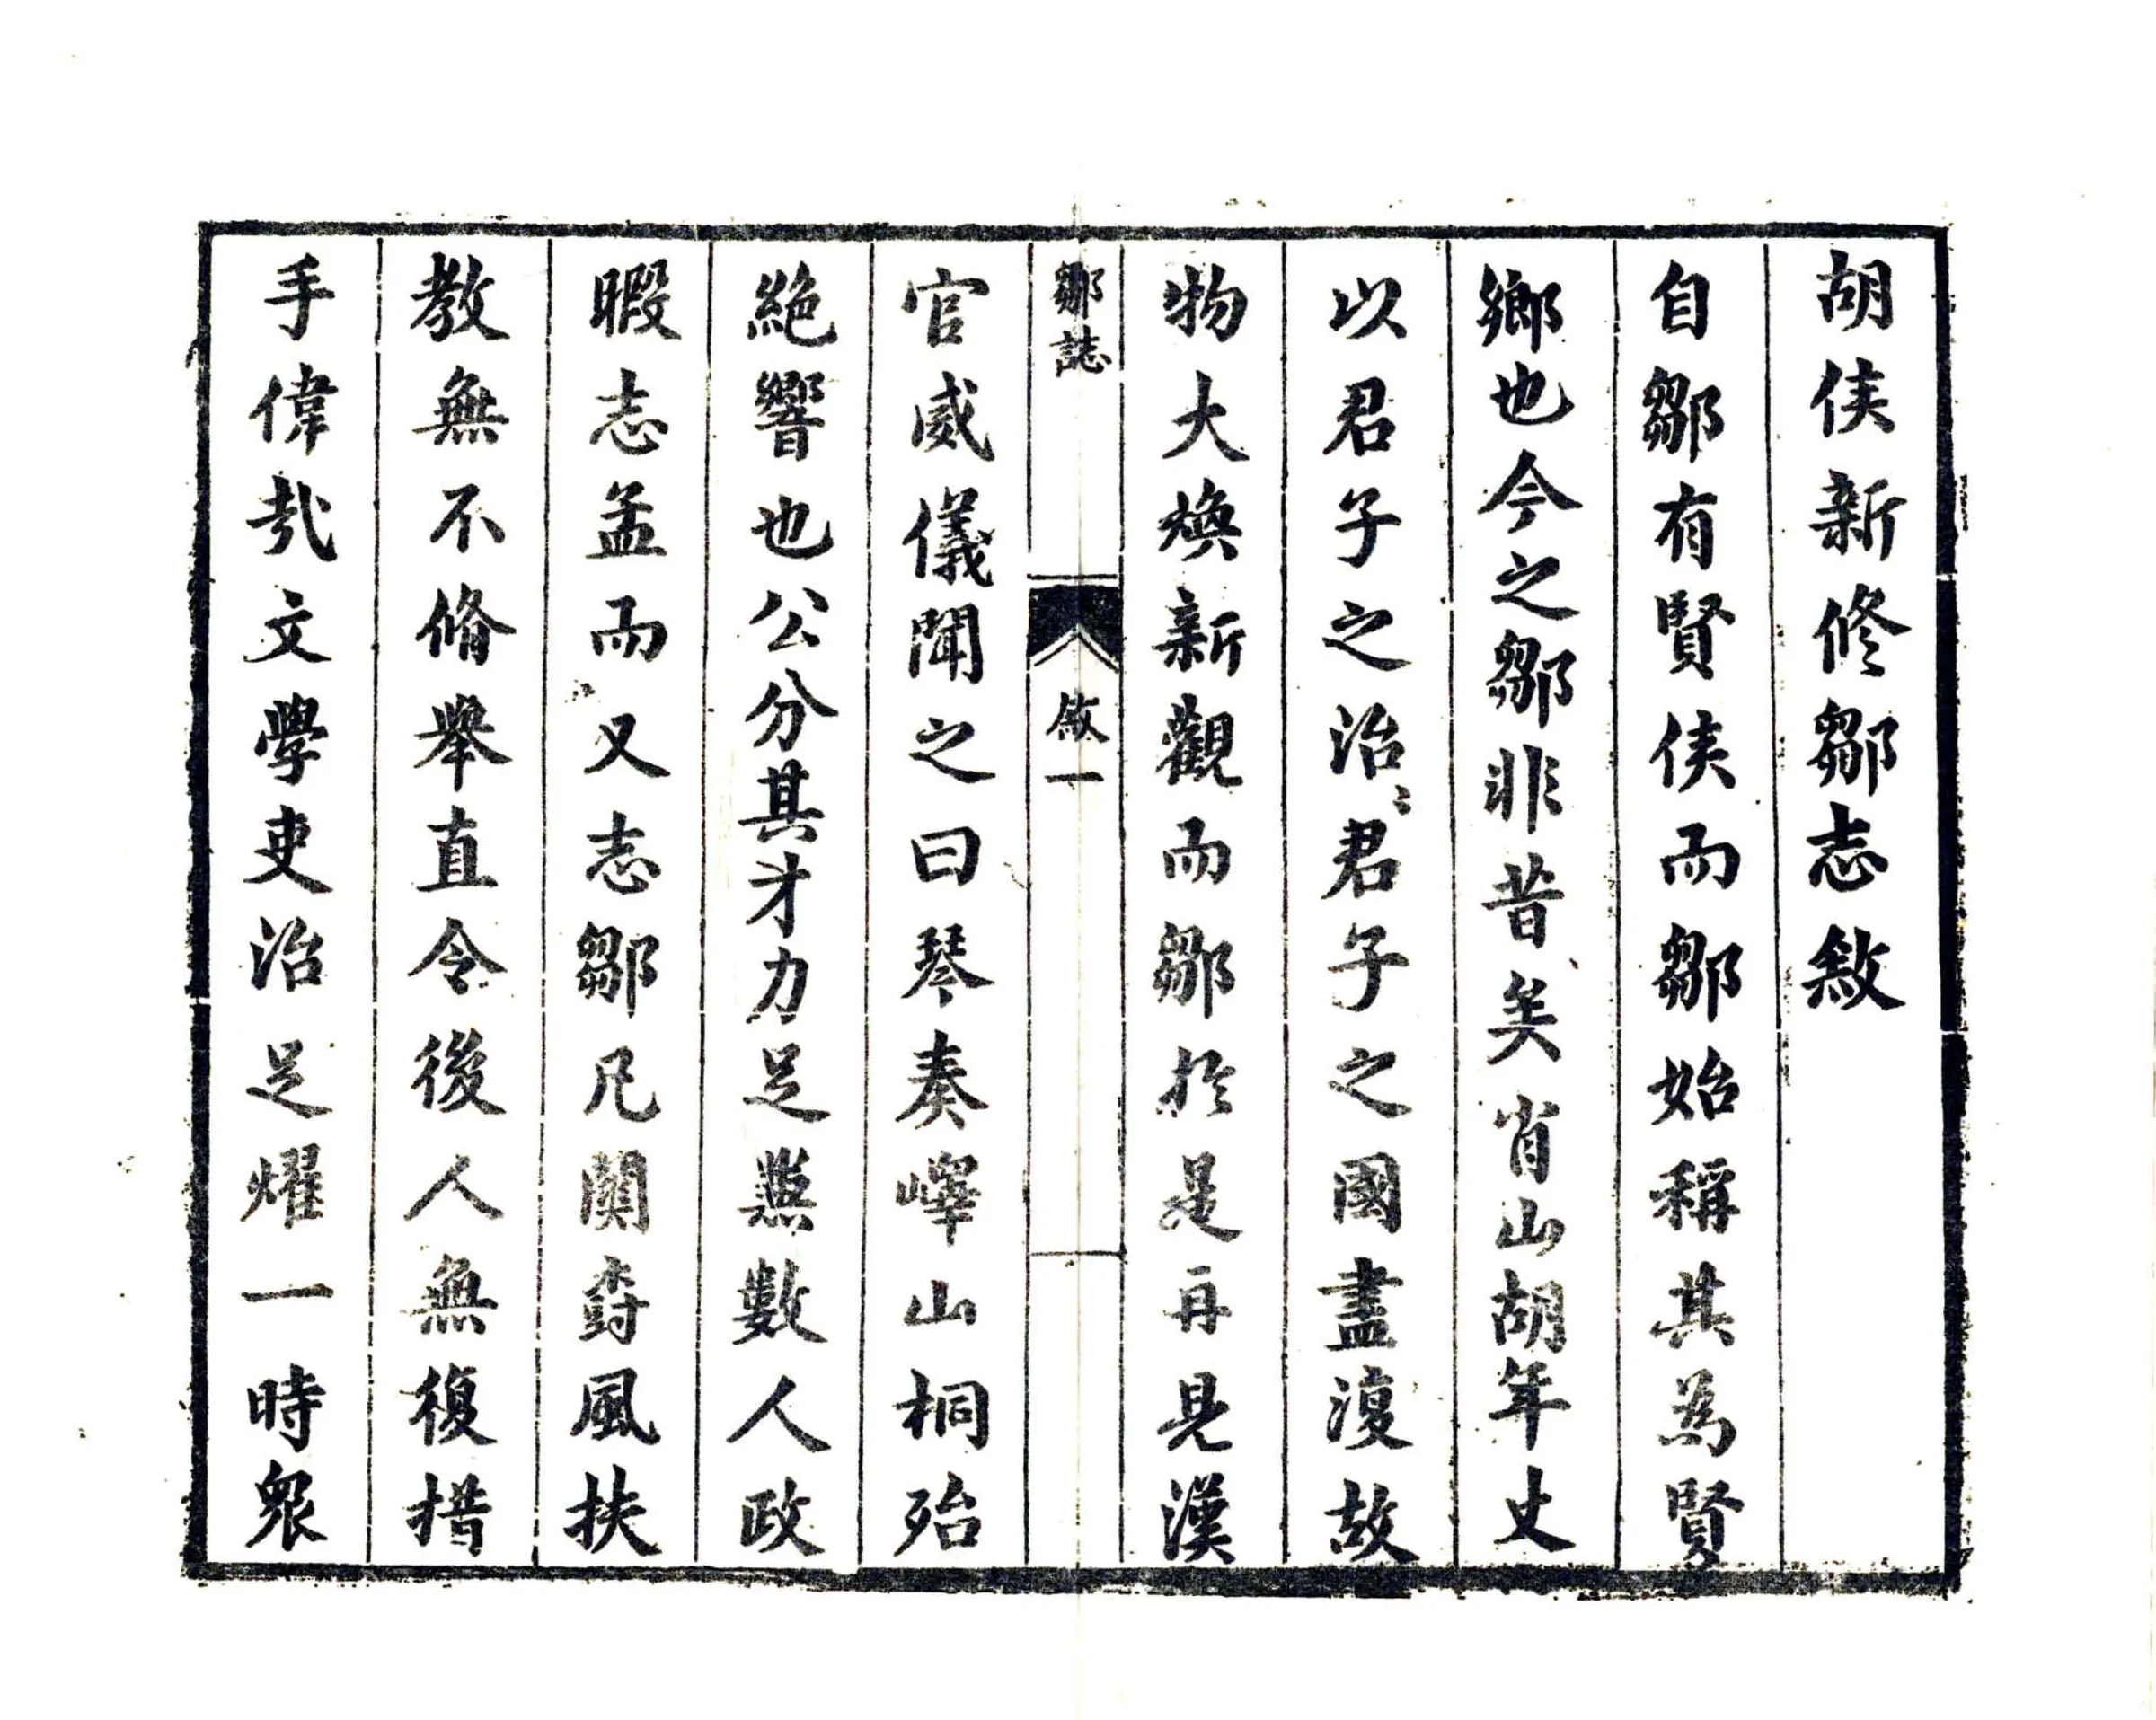 胡侯新修鄒志敘
自鄒有賢侯而鄒始稱其為賢
鄉也今之鄒非昔矣肖山胡年丈
以君子之治〻君子之國盡復故
物大煥新觀而鄒於是再見漢
官威儀聞之曰琴奏嶧山桐殆
絶響也公分其才力足𠑽數人政
暇志孟而又志鄒凡闡𡔷風扶
教無不脩舉直令後人無復措
手偉哉文學吏治足燿一時衆
鄒誌
敘一